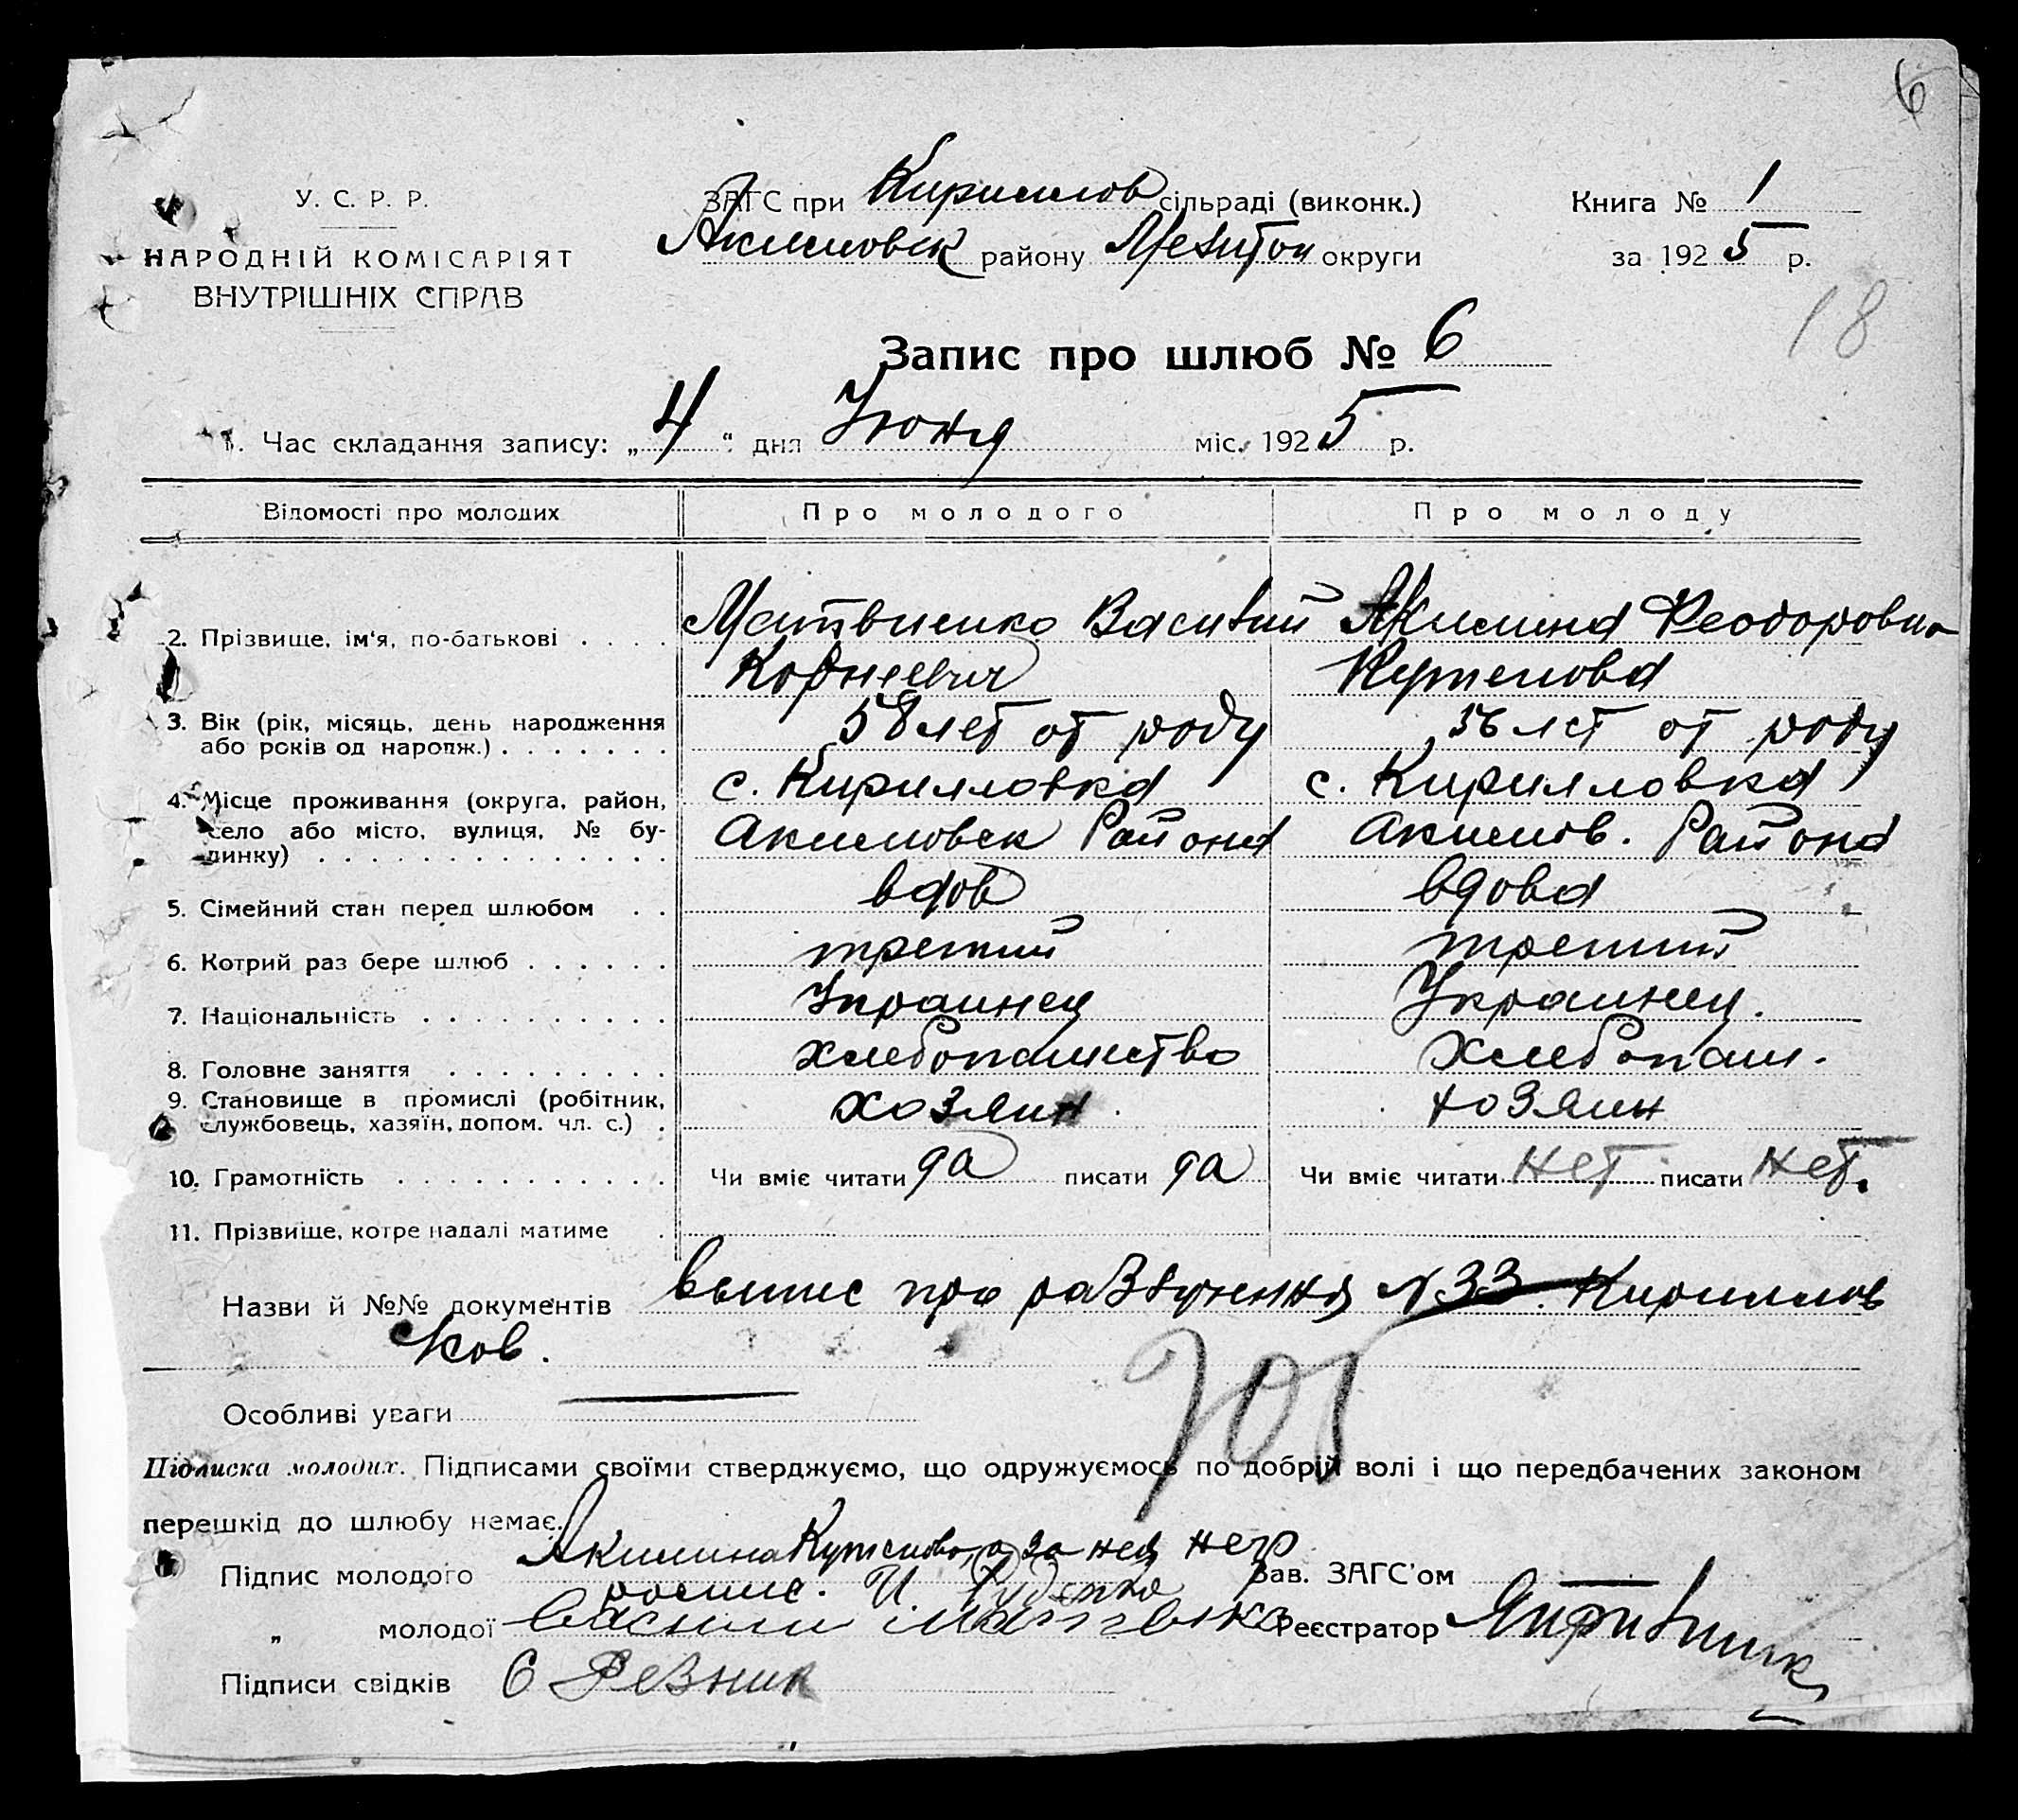 6
У. С. Р. Р.
НАРОДНІЙ КОМІСАРІЯТ
ВНУТРІШНІХ СПРАВ
ЗАГС при Кириллов сільраді (виконк.)
Акимовск району Мелитоп округи
Книга № 1
за 1925 р.
18
Запис про шлюб № 6
1. Час складання запису: „4“ дня Июня міс. 1925 р.
Відомості про молодих Про молодого Про молоду
2. Прізвище, ім'я, по-батькові . . . . Матвиенко Василий Акилина Феодоровна
Корнеевич
3. Вік (рік, місяць, день народження 58 лет от роду 56 лет от роду
або років од народж.) . . . . . . .
4. Місце проживання (округа, район, с. Кирилловка с. Кирилловка
село або місто, вулиця, № бу- Акимовск Района Акимов. Района
динку) . . . . . . . . . . . . . .
5. Сімейний стан перед шлюбом . . вдов вдова
6. Котрий раз бере шлюб . . . . . . третий третий
7. Національність . . . . . . . . . . Украинец Украинец.
8. Головне заняття . . . . . . . . . хлебопашество Хлебопаш.
9. Становище в промислі (робітник, хозяин хозяин
службовець, хазяїн, допом. чл. с.) .
10. Грамотність . . . . . . . . . . . Чи вміє читати да писати да Чи вміє читати нет писати нет.
11. Прізвище, котре надалі матиме .
Назви й №№ документів выпис про разлучения N 33. Кириллов
ков.
Особливі уваги
Підписка молодих. Підписами своїми стверджуємо, що одружуємось по добрій волі і що передбачених законом
перешкід до шлюбу немає.
Підпис молодого Акилина а за нея негр Зав. ЗАГС'ом
роспис. И Руденко
„ молодої Василий Реєстратор
Підписи свідків С Резник